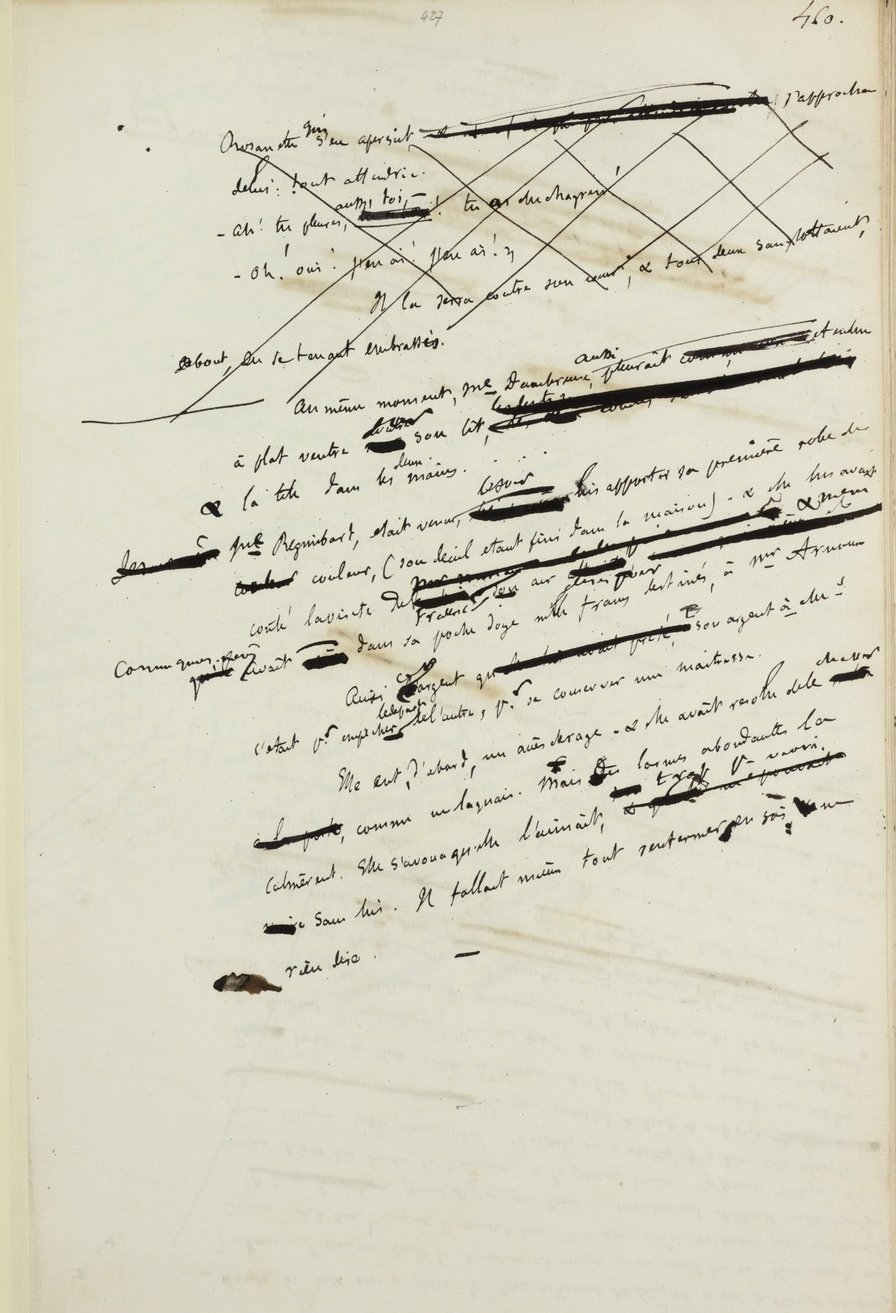 427
460.
Rosanette s'en aperçut, s'approcha
de lui. tout attendrie.
aussi, toi, —
– Ah! tu pleures, ! tu as du chagrin!
– Oh! oui! j'en ai! j'en ai! »
Il la serra contre son cœur, & tous deux sanglottaient,
debout, en se tenant embrassés.
aussi
Au même moment, Me Dambreuse, pleurait étendue
à plat ventre son lit,
deux
& la tête dans les mains.
le soir
Me Regimbart, etait venue, lui apporter sa première robe de
couleur, (son deuil etant fini dans la maison) – & elle lui avait
conté la visite de & même
Frederic
Communiqué,
avait dans sa poche douze mille francs destinés, à Mr Arnoux
Ainsi l'argent son argent à elle!
le depart
c'etait pr empêcher de l'autre, pr se conserver une maitresse.
Elle eut, d'abord, un accès de rage – & elle avait resolu de le chasser
comme un laquais. Mais des larmes abondantes la
calmèrent. Elle s'avoua qu'elle l'aimait, trop pr
sans lui. Il fallait mieux tout renfermer en soi, ne
rien dire. —